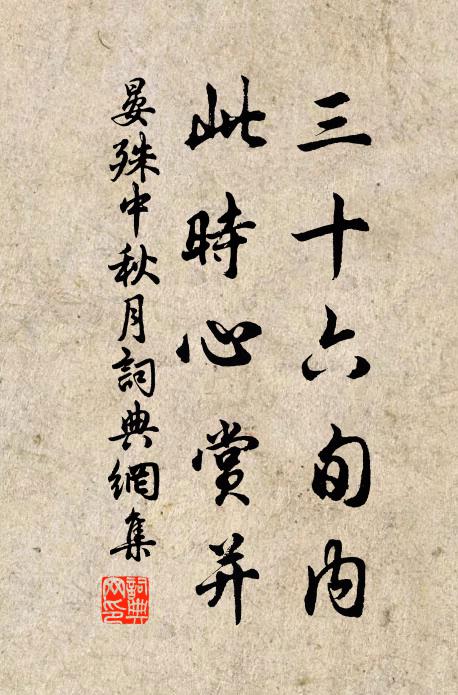 三十六旬内
此時心賞并
晏殊中秋月詞典網集
詞典网印